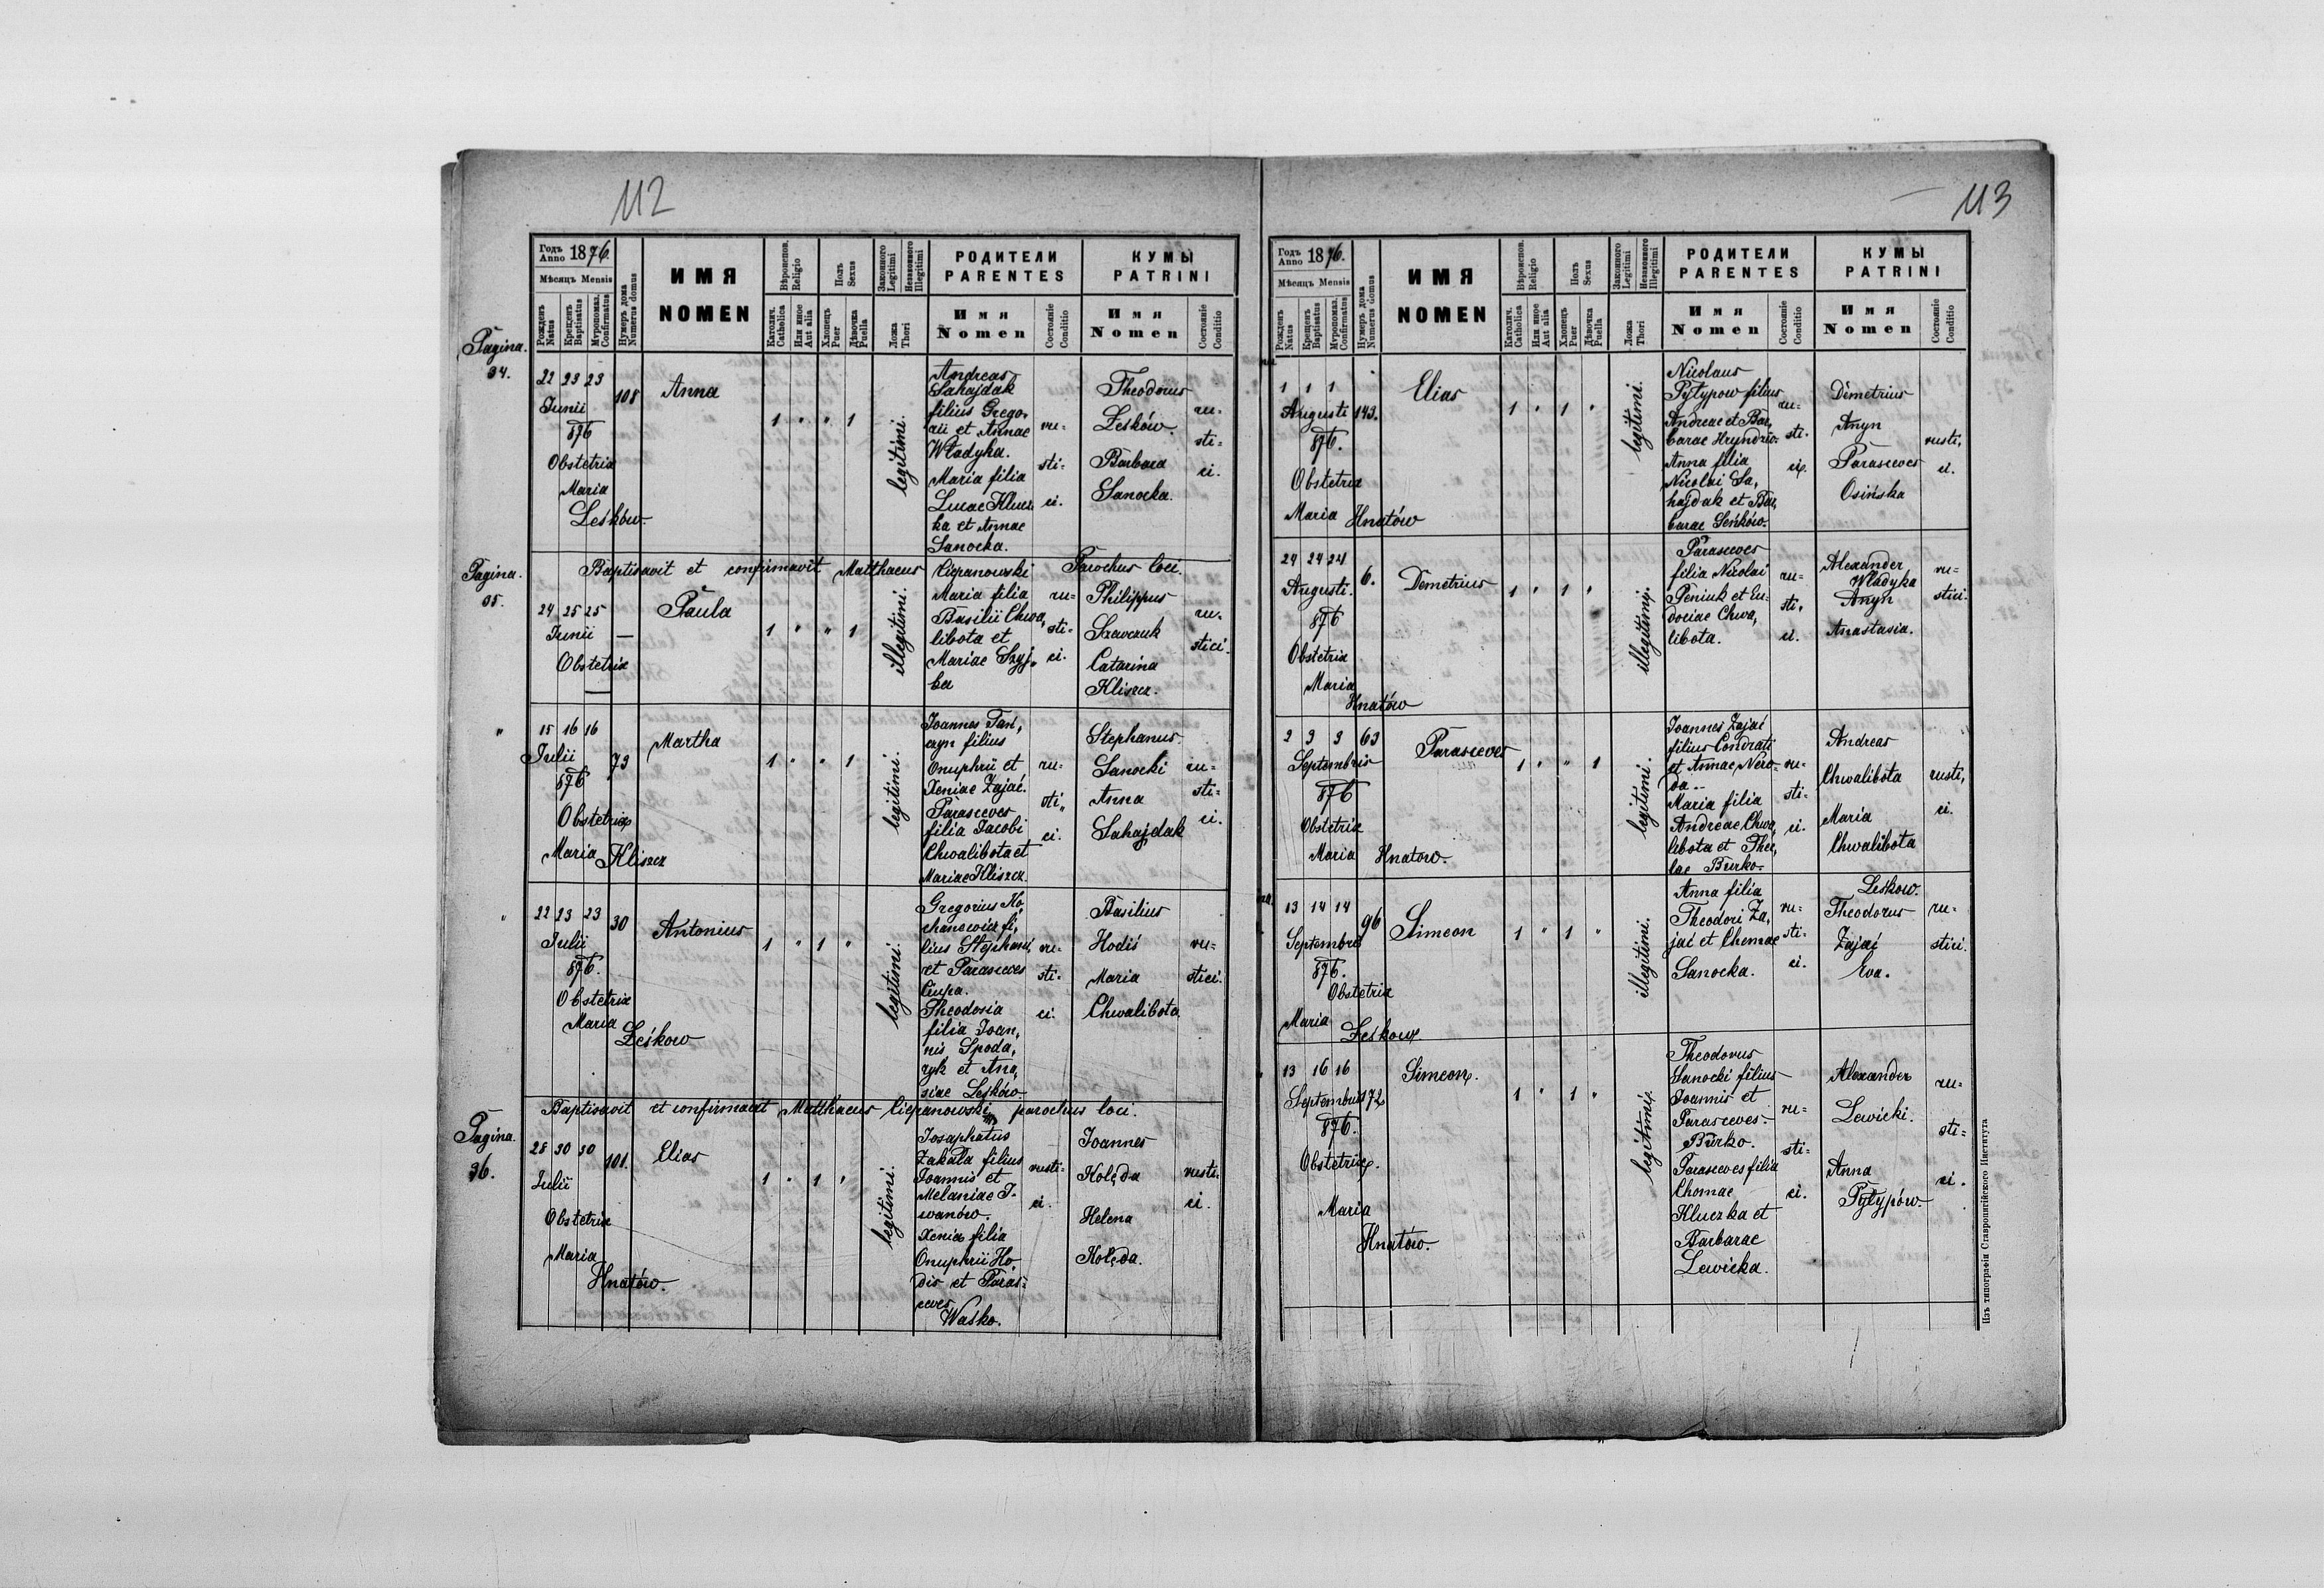 112
Годъ Anno 1876.
Мѣсяцъ Mensis
Рожденъ Natus
Крещенъ Baptisatus
Муропомаз. Confirmatus
Нумеръ дома Numerus domus
ИМЯ
NOMEN
Вѣроиспов. Religio
Католич. Catholica
Или иное Aut alia
Полъ Sexus
Хлопецъ Puer
Дѣвочка Puella
Законного Legitimi
Незаконного Illegitimi
Ложа Thori
РОДИТЕЛИ
PARENTES
Имя
Nomen
Состояніе Conditio
КУМЫ
PATRINI
Имя
Nomen
Состояніе Conditio
Pagina.
34.
22 23 23
Junii
876
Obstetrix
Maria
Leśków.
108
Anna
1 " " 1
legitimi.
Andreas
Sahajdak
filius Grego-
rii et Annae
Władyka.
Maria filia
Lucae Klucz
ka et Annae
Sanocka.
ru=
sti=
ci.
Theodorus
Leśków.
Barbara
Sanocka.
ru=
sti=
ci.
Baptisavit et confirmavit Matthaeus Ciepanowski Parochus loci.
Pagina.
35.
24 25 25
Junii
—
Obstetrix
—
Paula
1 " " 1
illegitimi.
Maria filia
Basilii Chwa,
libota et
Mariae Szyj,
ka
ru=
sti=
ci.
Philippus
Szewczuk
Catarina
Kliszcz.
ru=
stici.
"
15 16 16
Julii
876
Obstetrix
Maria Kliszcz
73
Martha
1 " " 1
legitimi.
Joannes Tan,
czyn filius
Onuphrii et
Xeniae Zajać.
Parasceves
filia Jacobi
Chwalibota et
Mariae Kliszcz.
ru=
sti"
ci.
Stephanus
Sanocki
Anna
Sahajdak
ru=
sti=
ci.
"
22 23 23
Julii
876.
Obstetrix
Maria
Leśkow
30
Antonius
1 " 1 "
legitimi.
Gregorius Ko,
chanewicz fi,
lius Stephani
et Parasceves
Ciupa.
Theodosia
filia Joan,
nis Spoda,
ryk et Ana,
siae Leśków.
ru=
sti=
ci.
Basilius
Hodiś
Maria
Chwalibota
ru=
stici.
Baptisavit et confirmavit Matthaeus Ciepanowski parochus loci.
Pagina.
36.
28 30 30
Julii
Obstetrix
Maria
Hnatów.
101.
Elias
1 " 1 "
legitimi.
Josaphatus
Zakala filius
Joannis et
Melaniae I-
wanów.
Xenia filia
Onuphrii Ho,
dis et Paras=
ceves
Waśko.
rusti=
ci.
Joannes
Kolęda
Helena
Kolęda.
rusti=
ci.
113
Годъ Anno 1876.
Мѣсяцъ Mensis
Рожденъ Natus
Крещенъ Baptisatus
Муропомаз. Confirmatus
Нумеръ дома Numerus domus
ИМЯ
NOMEN
Вѣроиспов. Religio
Католич. Catholica
Или иное Aut alia
Полъ Sexus
Хлопецъ Puer
Дѣвочка Puella
Законного Legitimi
Незаконного Illegitimi
Ложа Thori
РОДИТЕЛИ
PARENTES
Имя
Nomen
Состояніе Conditio
КУМЫ
PATRINI
Имя
Nomen
Состояніе Conditio
1 1 1
Augusti
876.
Obstetrix
Maria Hnatów
143.
Elias
1 " 1 "
legitimi.
Nicolaus
Pytypow filius
Andreae et Bar,
barae Hryndzio-
Anna filia
Nicolai Sa,
hajdak et Bar,
barae Seńków.
ru=
sti=
ci.
Demetrius
Anyn
Parasceves
Osińska
rusti,
ci.
24 24 24
Augusti.
876
Obstetrix
Maria
Hnatów
6.
Demetrius
1 " 1 "
illegitimi.
Parasceves
filia Nicolai
Peniuk et Eu-
dociae Chwa,
libota.
ru=
sti,
ci.
Alexander
Władyka
Anyn
Anastasia.
ru=
stici.
2 3 3
Septembris
876
Obstetrix
Maria Hnatow.
63
Parasceves
1 " " 1
legitimi.
Joannes Zajać
filius Condrati
et Annae Nero-
da --
Maria filia
Andreae Chwa,
libota et The,
lae Burko-
ru=
sti=
ci.
Andreas
Chwalibota
Maria
Chwalibota
rusti,
ci.
13 14 14
Septembris
876.
Obstetrix
Maria
Leśkow.
96
Simeon
1 " 1 "
illegitimi.
Anna filia
Theodori Za,
jać et Chemae
Sanocka.
ru=
sti=
ci.
Leśkow.
Theodorus
Zajać
Eva.
ru=
stici.
13 16 16
Septembris
876.
Obstetrix.
Maria
Hnatów.
172
Simeon.
1 " 1 "
legitimi.
Theodorus
Sanocki filius
Joannis et
Parasceves
Burko.
Parasceves filia
Chomae
Kluczka et
Barbarae
Lewicka.
ru=
sti=
ci.
Alexander
Lewicki.
Anna
Pytypów.
ru=
sti=
ci.
Изъ типографіи Ставропигійского Института